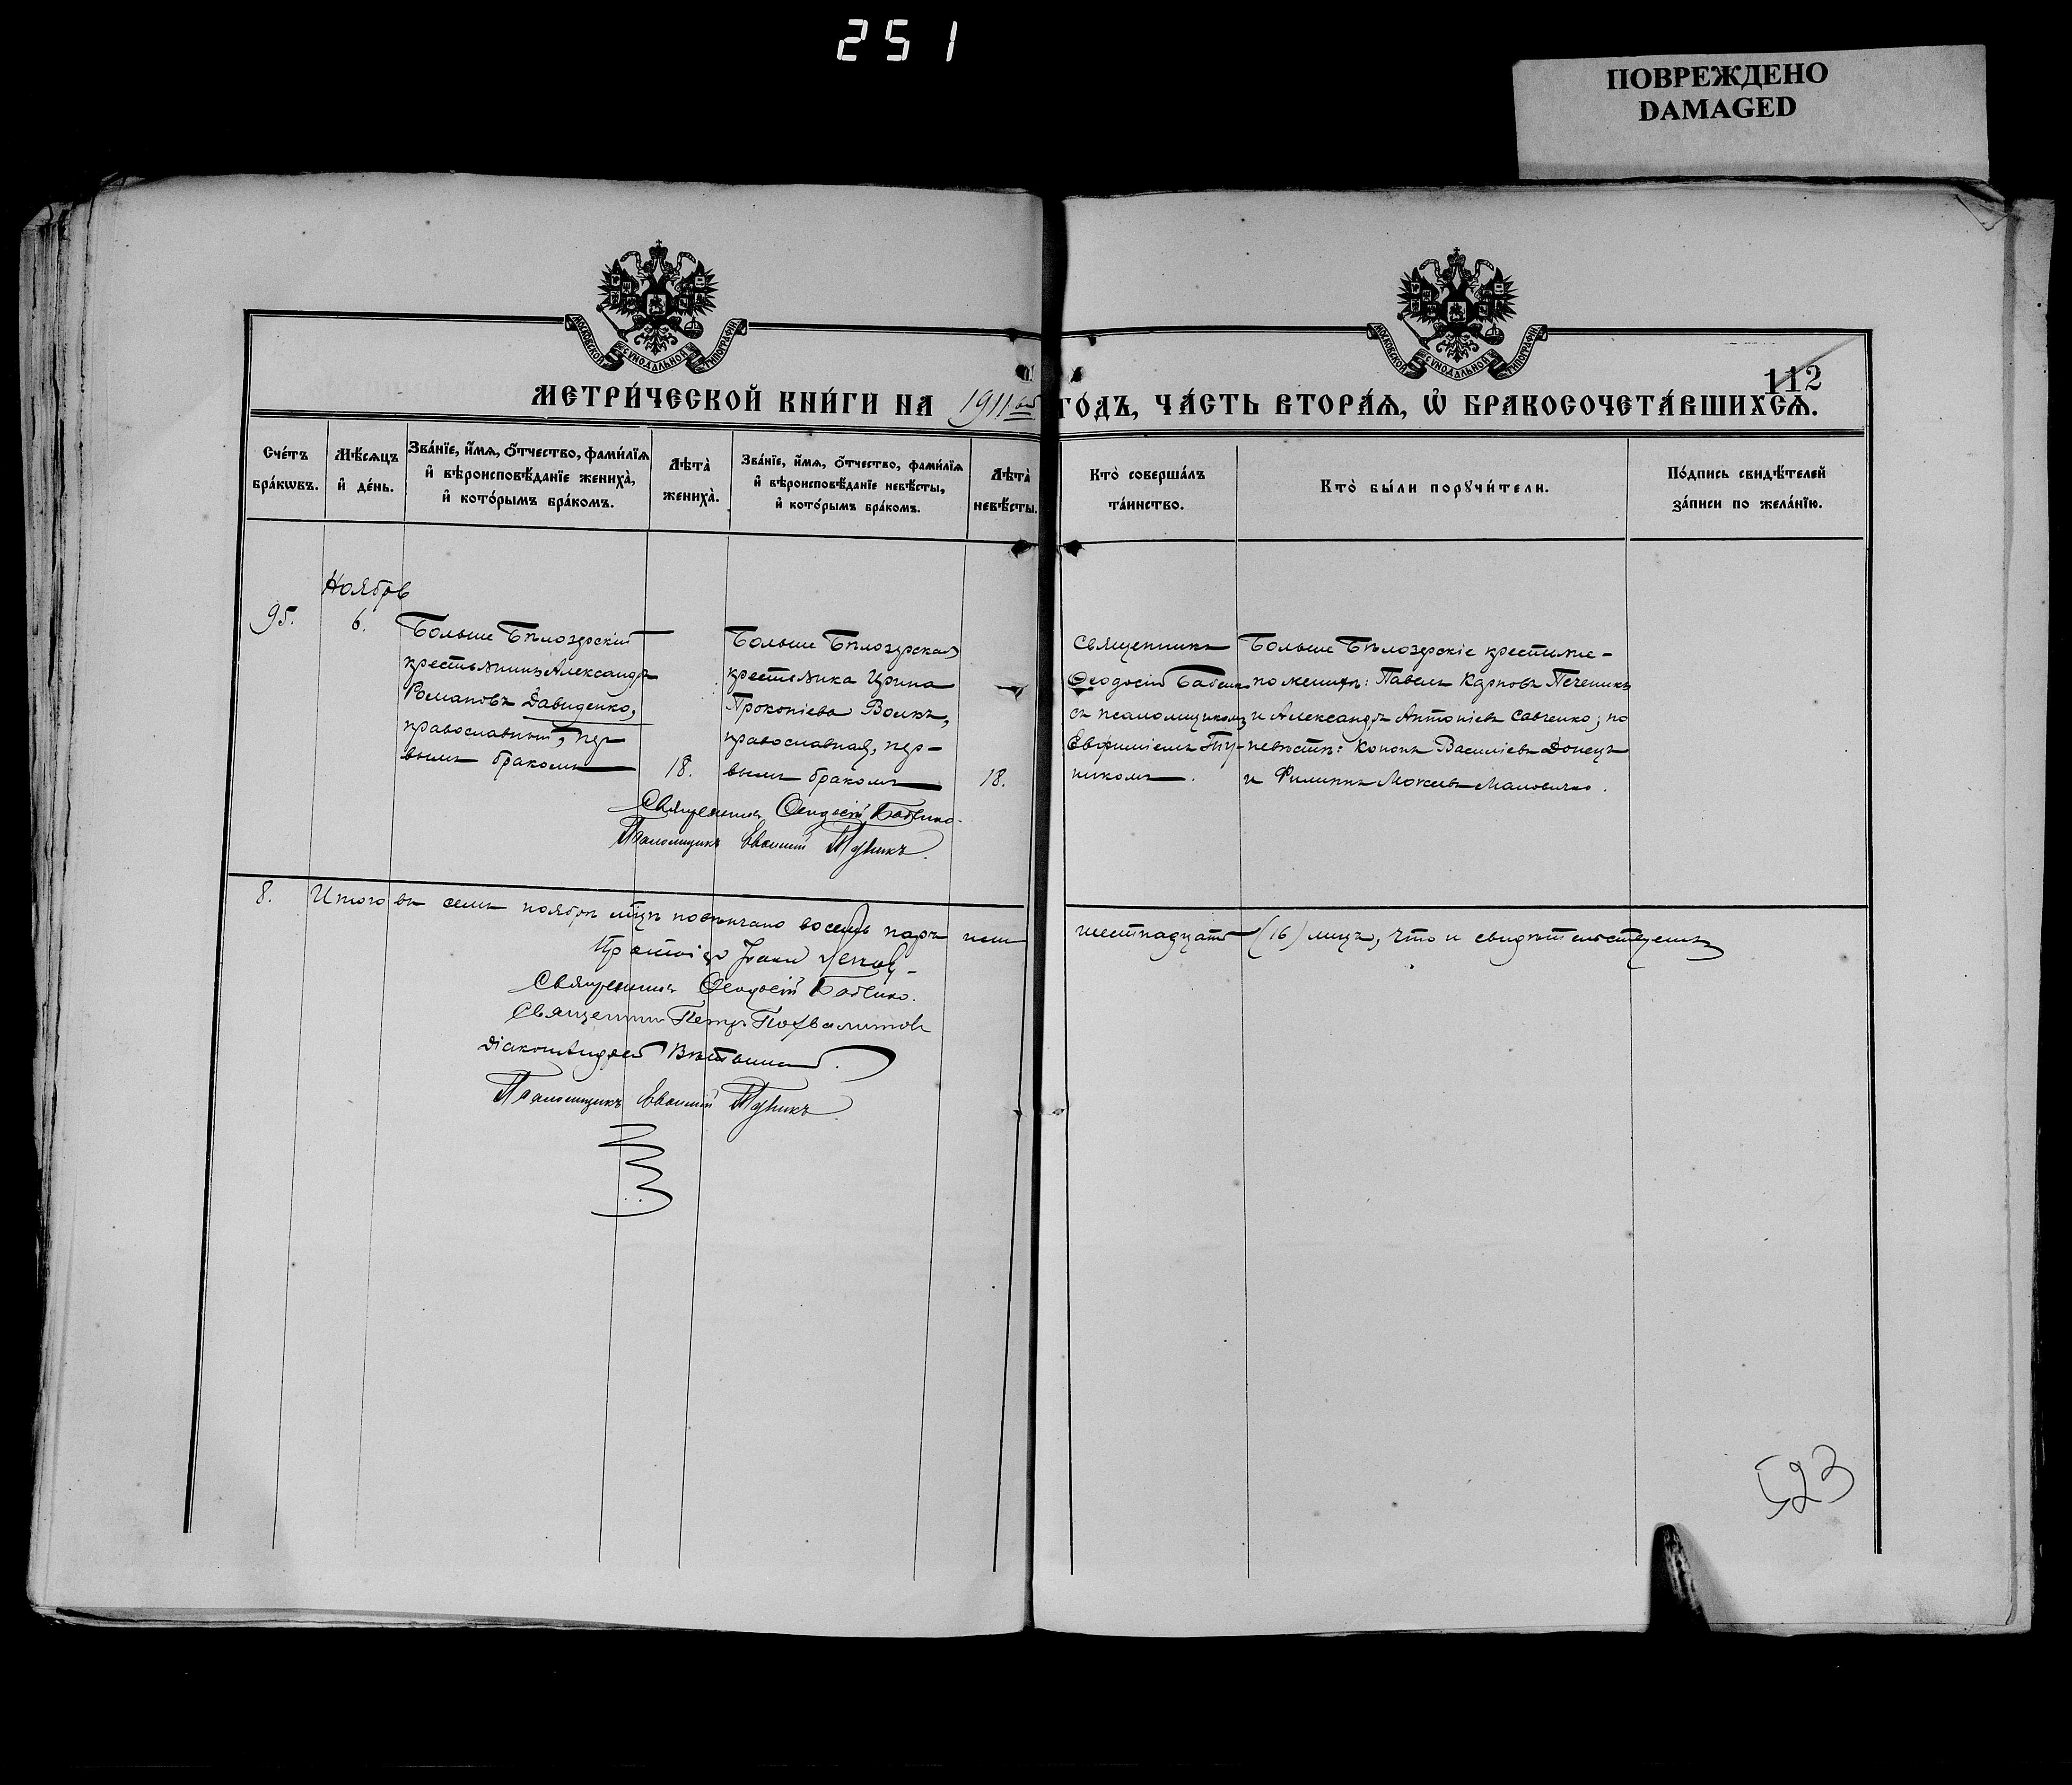 251
ПОВРЕЖДЕНО
DAMAGED
МОСКОВСКОЙ СѴНОДАЛЬНОЙ ТИПОГРАФІИ
МОСКОВСКОЙ СѴНОДАЛЬНОЙ ТИПОГРАФІИ
112
МЕТРИ́ЧЕСКОЙ КНИ́ГИ НА 1911 ГО́ДЪ, ЧА́СТЬ ВТОРА́Я, Ѡ БРАКОСОЧЕТА́ВШИХСЯ.
Сче́тъ
бра́кѡвъ.
Мѣ́сяцъ
и҆ де́нь.
Зва́нїе, и҆́мя, ѻ҆́тчество, фами́лїя
и҆ вѣроисповѣ́данїе жениха̀,
и҆ кото́рымъ бра́комъ.
Лѣта̀
жениха̀.
Зва́нїе, и҆́мя, ѻ҆́тчество, фами́лїя
и҆ вѣроисповѣ́данїе невѣ́сты,
и҆ кото́рымъ бра́комъ.
Лѣта̀
невѣ́сты.
Кто̀ соверша́лъ
та́инство.
Кто̀ бы́ли порꙋчи́тели.
По́дпись свидѣ́телей
за́писи по жела́нїю.
95.
Ноябрь
6.
Больше Бѣлозерскій
крестьянинъ Александръ
Романовъ Давиденко,
православный, пер-
вымъ бракомъ
18.
Больше Бѣлозерская
крестьянка Ирина
Прокопіева Волкъ,
православная, пер-
вымъ бракомъ
18.
Священникъ
Ѳеодосій Бабенко
съ псаломщикомъ
Евфиміемъ Ту-
никомъ.
Больше Бѣлозерскіе крестьяне-
по женихѣ: Павелъ Карповъ Печеникъ
и Александръ Антоніевъ Савченко; по
невѣстѣ: Кононъ Василіевъ Донецъ
и Филиппъ Моисеевъ Маловичко.
Священникъ Ѳеодосій Бабенко.
Псаломщикъ Евфимій Туникъ.
8. Итого въ семъ ноябрѣ м͠цѣ повѣнчано восемь паръ или шестнадцать (16) лицъ, что и свидѣтельствуемъ
Протоіер Іоанн
Священникъ Ѳеодосій Бабенко.
Священник Петръ Похвалитов
Діаконъ Андрей
Псаломщикъ Евфимій Туникъ.
523